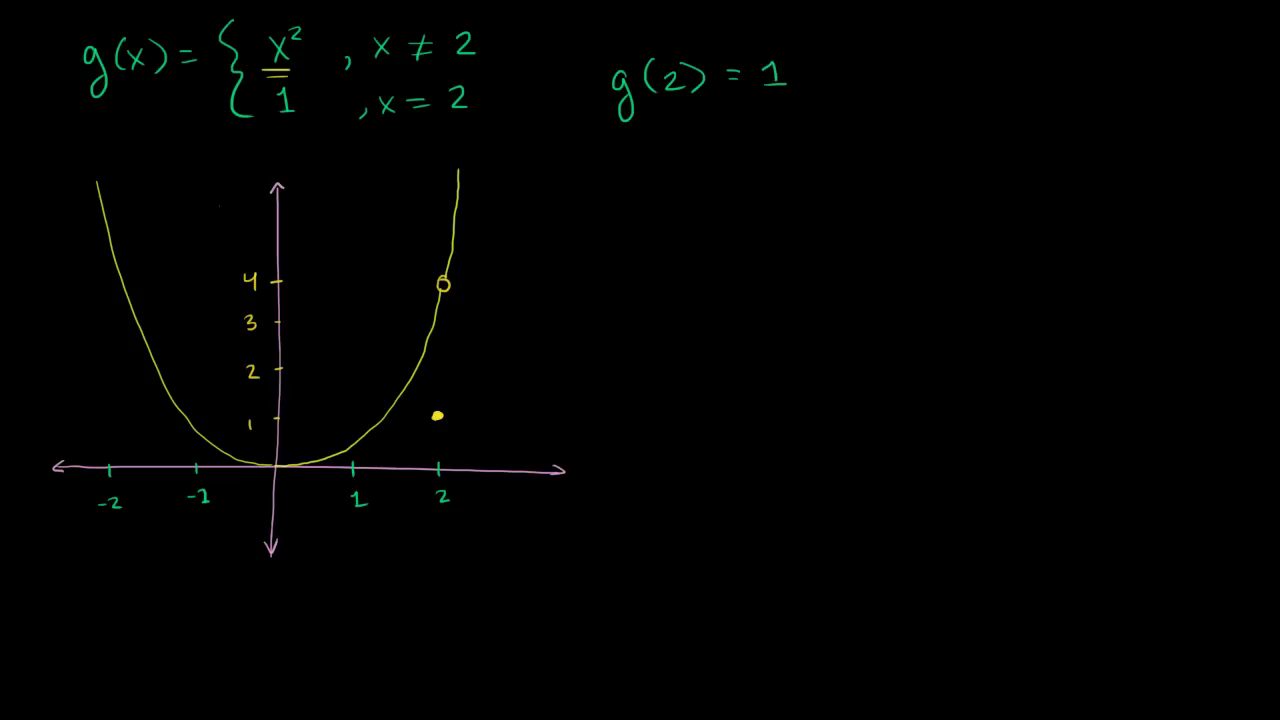 g(x) = { x² , x ≠ 2
1 , x = 2
g(2) = 1
4
3
2
1
-2 -1 1 2